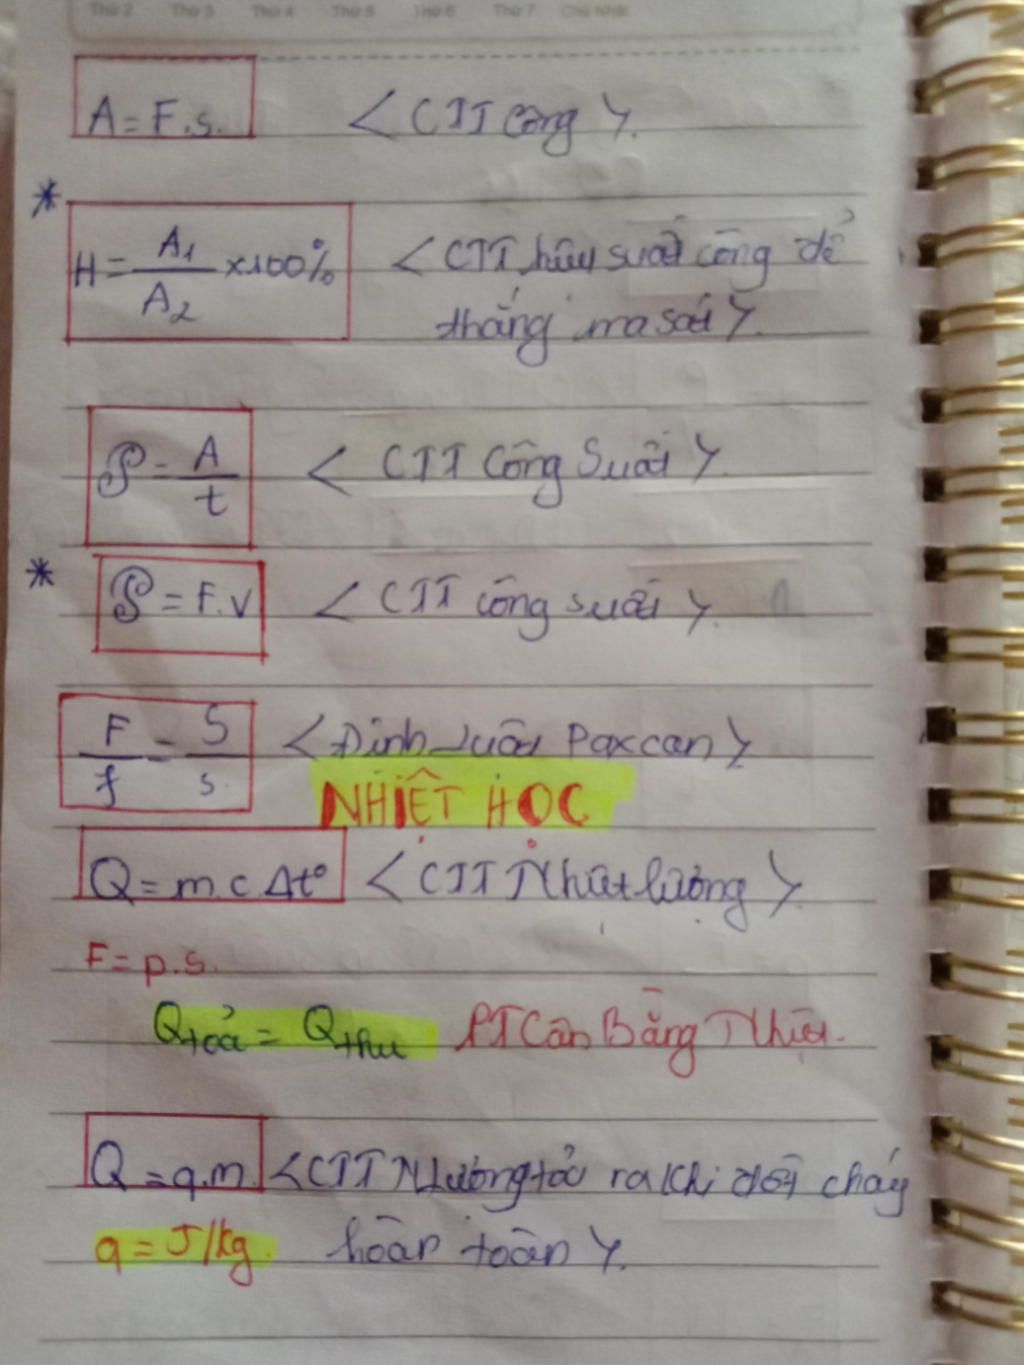 Thứ 2 Thứ 3 Thứ 4 Thứ 5 Thứ 6 Thứ 7 Chủ Nhật
A = F.s. < CTT Công >.
* H = A1/A2 x100% < CTT hiệu suất công để
thắng ma sát >.
𝒫 = A/t < CTT Công Suất >.
* 𝒫 = F.v < CTT công suất >.
F/f = S/s. < Định Luật Paxcan >
NHIỆT HỌC
Q = m.c.Δt° < CTT Nhiệt lượng >.
F = p.s.
Qtỏa = Qthu PT Cân Bằng Nhiệt.
Q = q.m < CTT N Lượng tỏa ra khi đốt cháy
q = J/kg. hoàn toàn >.